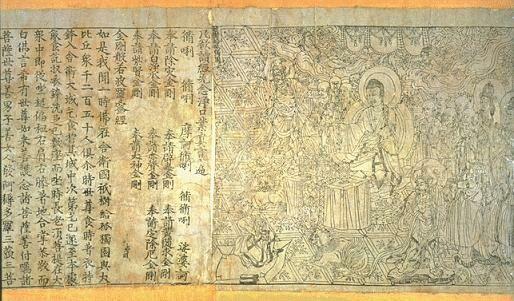 凡欲讀經先念淨口業真言一遍
脩唎 脩唎 摩訶脩唎 脩脩唎 娑婆訶
奉請除災金剛 奉請辟毒金剛 奉請黃隨求金剛
奉請白淨水金剛 奉請赤聲金剛 奉請定除厄金剛
奉請紫賢金剛 奉請大神金剛
金剛般若波羅蜜經
如是我聞一時佛在舍衛國祇樹給孤獨園與大
比丘衆千二百五十人俱尒時世尊食時著衣持
鉢入舍衛大城乞食於其城中次第乞已還至本處
飯食訖收衣鉢洗足已敷座而坐時長老須菩提在大
衆中即從座起偏袒右肩右膝著地合掌恭敬而
白佛言希有世尊如来善護念諸菩薩善付囑諸
菩薩世尊善男子善女人發阿耨多羅三藐三菩